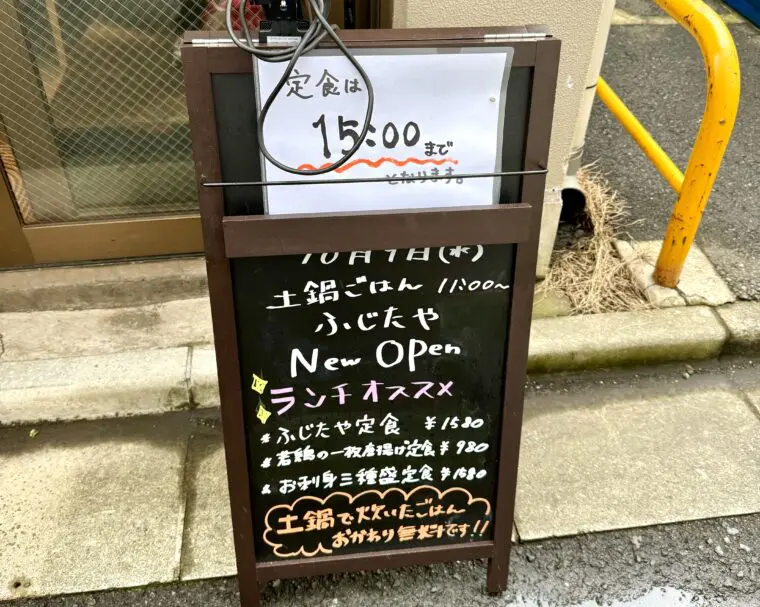 定食は
15:00まで
となります。
10月9日(水)
土鍋ごはん 11:00~
ふじたや
New Open
ランチオススメ
ふじたや定食 ¥1580
若鶏の一枚唐揚げ定食 ¥980
お刺身三種盛定食 ¥1580
土鍋で炊いたごはん
おかわり無料です!!